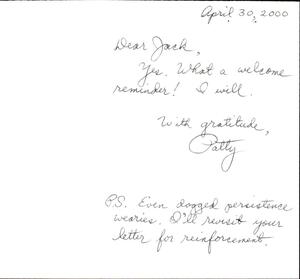 April 30, 2000
Dear Jack,
Yes. What a welcome
reminder! I will.
With gratitude,
Patty
P.S. Even dogged persistence
wearies. I'll revisit your
letter for reinforcement.